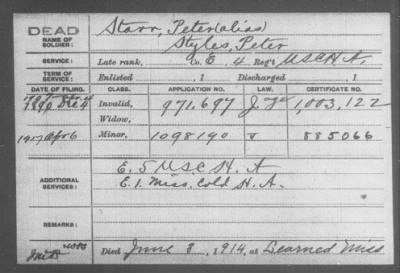 DEAD
NAME OF SOLDIER:
Starr, Peter (alias)
Styles, Peter
SERVICE:
Late rank, Co. E. 4 Reg't U.S.C.H.A.
TERM OF SERVICE:
Enlisted , 1 Discharged , 1
DATE OF FILING. CLASS. APPLICATION NO. LAW. CERTIFICATE NO.
1890 Dec 4 Invalid, 971,697 1,003,122
Widow,
1917 Apr 6 Minor, 1098190 885066
ADDITIONAL SERVICES:
E. 5 U.S.C. H. A
E. 1. Miss. Cold H. A.
REMARKS:
Died June 8, 1914, at Learned Miss